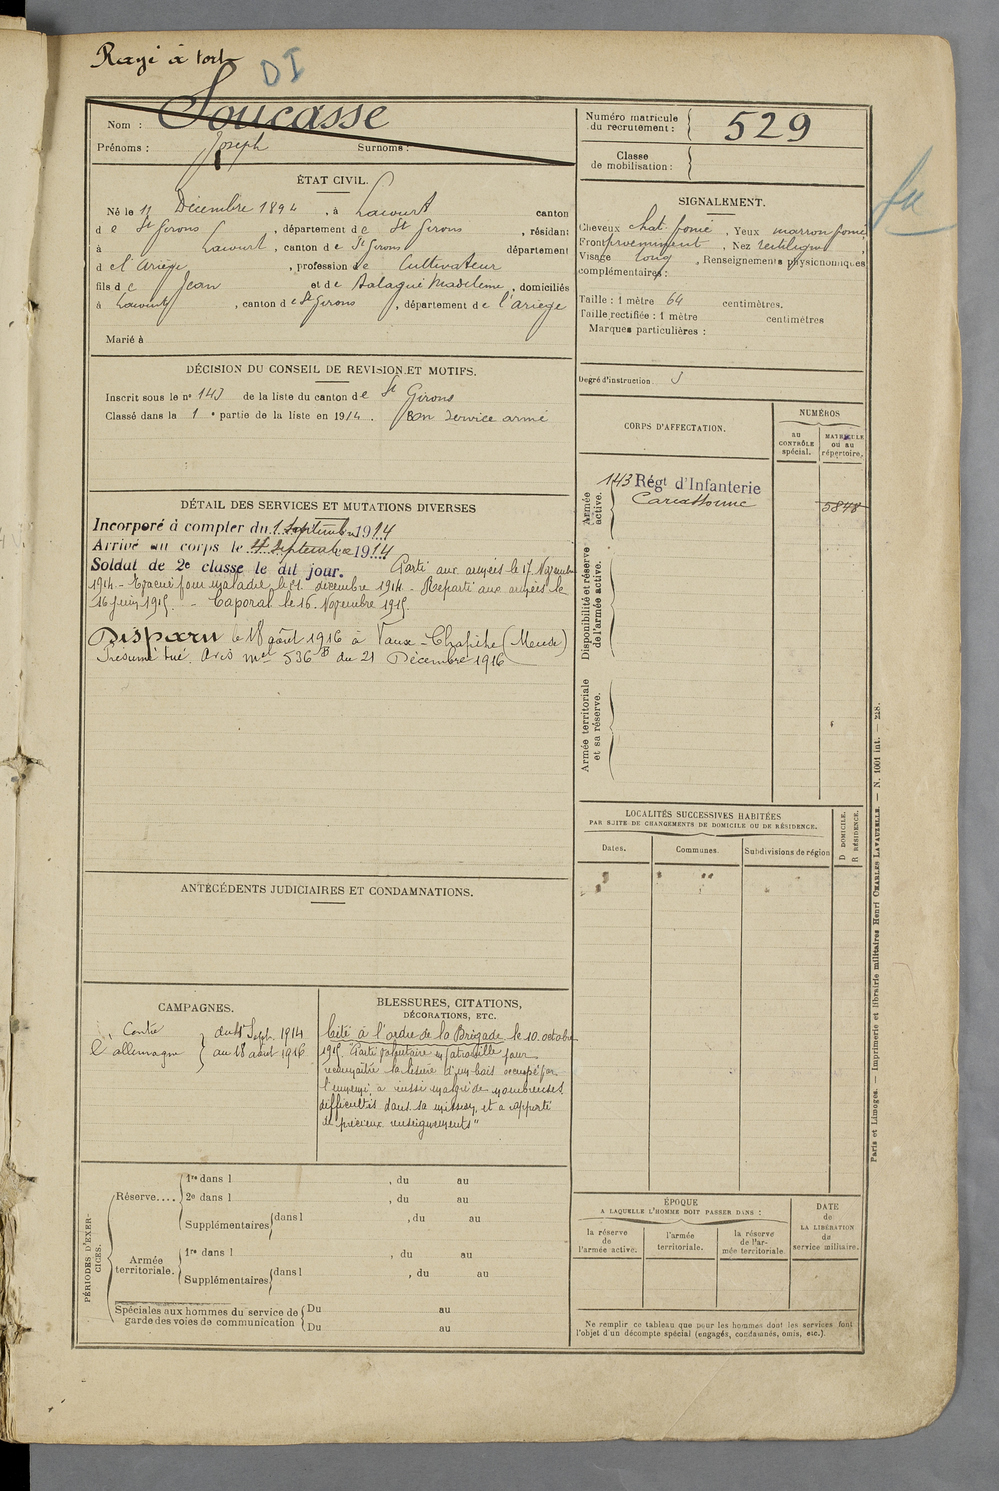 Rayé à tort
DI
Nom : Soucasse
Prénoms : Joseph Surnoms :
Numéro matricule du recrutement : 529
Classe de mobilisation :
ÉTAT CIVIL.
Né le 11 Décembre 1894, à Lacourt canton
de St Girons, département de St Girons, résidant
à Lacourt, canton de St Girons département
de l'Ariège, profession de Cultivateur
fils de Jean et de Balagué Madeleine, domiciliés
à Lacourt, canton de St Girons, département de l'Ariège
Marié à
SIGNALEMENT.
Cheveux chat. foncé, Yeux marron foncé,
Front proeminent, Nez rectiligne,
Visage long, Renseignements physionomiques
complémentaires :
Taille : 1 mètre 64 centimètres.
Taille rectifiée : 1 mètre centimètres
Marques particulières :
Degré d'instruction. 3
DÉCISION DU CONSEIL DE REVISION ET MOTIFS.
Inscrit sous le no 143 de la liste du canton de St Girons
Classé dans la 1e partie de la liste en 1914. Bon service armé
CORPS D'AFFECTATION.
NUMÉROS
au CONTRÔLE spécial.
MATRICULE ou au répertoire.
Armée active.
143 Régt d'Infanterie
Carcassonne
5848
Disponibilité et réserve de l'armée active.
Armée territoriale et sa réserve.
DÉTAIL DES SERVICES ET MUTATIONS DIVERSES
Incorporé à compter du 1 Septembre 1914
Arrivé au corps le 4 Septembre 1914
Soldat de 2e classe le dit jour. Parti aux armées le 17 Novembre
1914 - Evacué pour maladie le 21 décembre 1914 - Reparti aux armées le
16 Juin 1915. - Caporal le 16 Novembre 1915.
Disparu le 18 août 1916 à Vaux-Chapitre (Meuse)
Présumé tué. Avis mel 536 B du 21 Décembre 1916
LOCALITÉS SUCCESSIVES HABITÉES
PAR SUITE DE CHANGEMENTS DE DOMICILE OU DE RÉSIDENCE.
Dates. Communes. Subdivisions de région
D DOMICILE.
R RÉSIDENCE.
ANTÉCÉDENTS JUDICIAIRES ET CONDAMNATIONS.
CAMPAGNES.
Contre l'allemagne
du 4 Sept. 1914
au 18 août 1916
BLESSURES, CITATIONS,
DÉCORATIONS, ETC.
Cité à l'ordre de la Brigade le 10 octobre
1915 "Parti volontaire en patrouille pour
reconnaître la lisière d'un bois occupé par
l'ennemi a réussi malgré de nombreuses
difficultés dans sa mission, et a rapporté
de précieux renseignements"
PÉRIODES D'EXERCICES.
Réserve.... 1re dans l , du au
2e dans l , du au
Supplémentaires dans l , du au
Armée territoriale. 1re dans l , du au
Supplémentaires dans l , du au
Spéciales aux hommes du service de garde des voies de communication Du au
Du au
ÉPOQUE
A LAQUELLE L'HOMME DOIT PASSER DANS :
la réserve de l'armée active.
l'armée territoriale.
la réserve de l'armée territoriale
DATE de LA LIBÉRATION du service militaire.
Ne remplir ce tableau que pour les hommes dont les services font
l'objet d'un décompte spécial (engagés, condamnés, omis, etc.).
Paris et Limoges. — Imprimerie et librairie militaires Henri CHARLES LAVAUZELLE. — N. 1001 int. — 218.